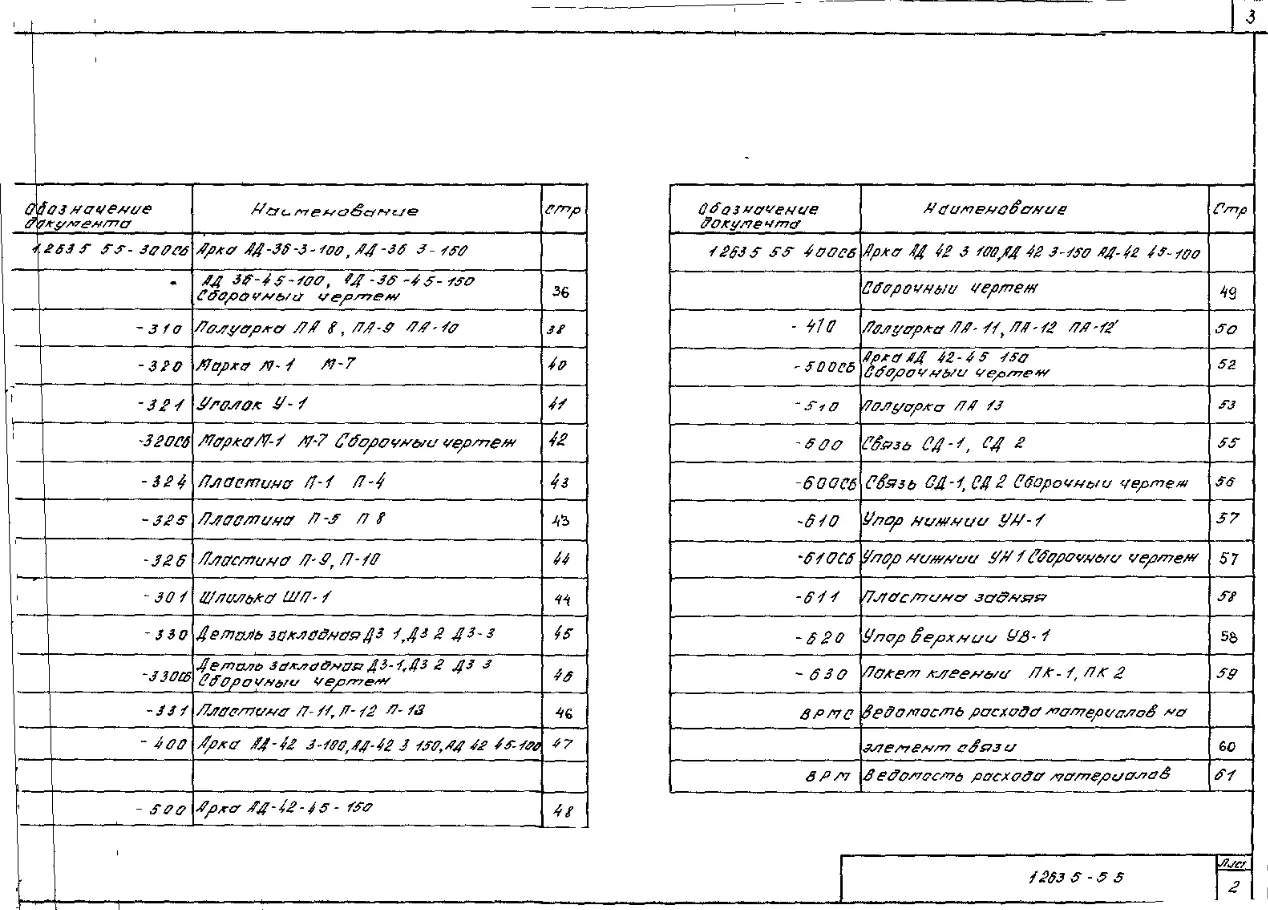 3
Обозначение документа
Наименование
Стр
1.263 5 5 5 - 300СБ Арка АД-36-3-100, АД-36 3-150
АД 36-4 5-100, АД-36-4 5-150
Сборочный чертеж 36
-310 Полуарка ПА 8, ПА-9 ПА-10 38
-320 Марка М-1 М-7 40
-321 Уголок У-1 41
-320СБ Марка М-1 М-7 Сборочный чертеж 42
-324 Пластина П-1 П-4 43
-325 Пластина П-5 П 8 43
-326 Пластина П-9, П-10 44
-301 Шпилька ШП-1 44
-330 Деталь закладная ДЗ 1, ДЗ 2 ДЗ-3 45
-330СБ Деталь закладная ДЗ-1, ДЗ 2 ДЗ 3
Сборочный чертеж 45
-331 Пластина П-11, П-12 П-13 46
-400 Арка АД-42 3-100, АД-42 3 150, АД 42 4 5-100 47
-500 Арка АД-42-4 5-150 48
Обозначение документа
Наименование
Стр
1 263 5 5 5 400СБ Арка АД 42 3 100, АД 42 3-150 АД-42 4 5-100
Сборочный чертеж 49
-410 Полуарка ПА-11, ПА-12 ПА-12' 50
-500СБ Арка АД 42-4 5 150
Сборочный чертеж 52
-510 Полуарка ПА 13 53
-600 Связь СД-1, СД 2 55
-600СБ Связь СД-1, СД 2 Сборочный чертеж 56
-610 Упор нижнии УН-1 57
-610СБ Упор нижнии УН 1 Сборочный чертеж 57
-611 Пластина задняя 58
-620 Упор верхнии УВ-1 58
-630 Пакет клееный ПК-1, ПК 2 59
ВРМС Ведомость расхода материалов на
элемент связи 60
ВРМ Ведомость расхода материалов 61
1 263 5 - 5 5
Лист
2